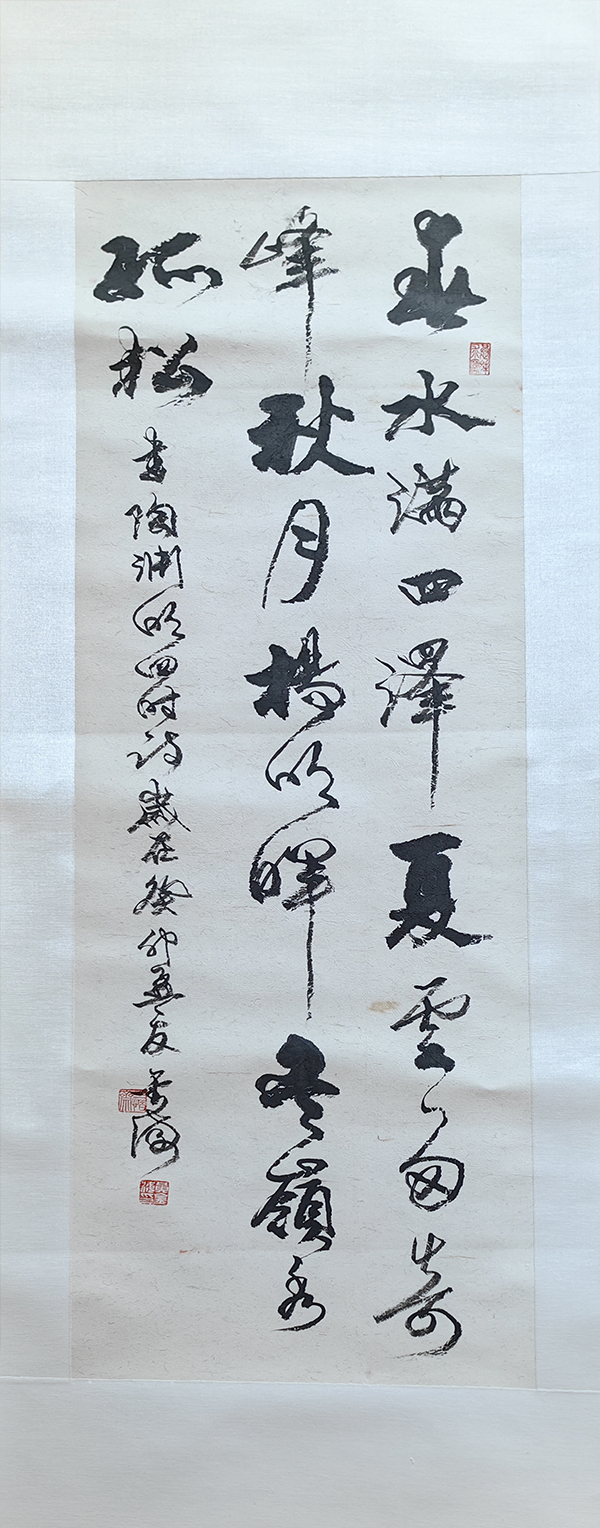 春水满四澤夏雲多奇
峰秋月揚明暉冬嶺秀
孤松
書陶渊明四时诗歲在癸卯